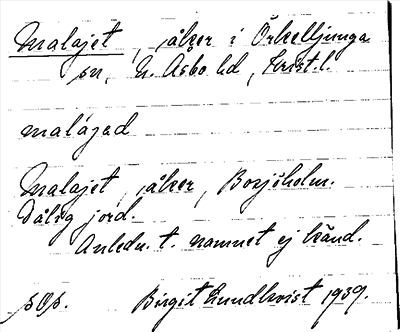 Malajet, åker i Örkelljunga
sn, N. Åsbo hd, Krist.l.
malájəd
Malajet, åker, Bosjöholm.
Dålig jord.
Anledn. t. namnet ej känd.
Birgit Lundkvist 1939.